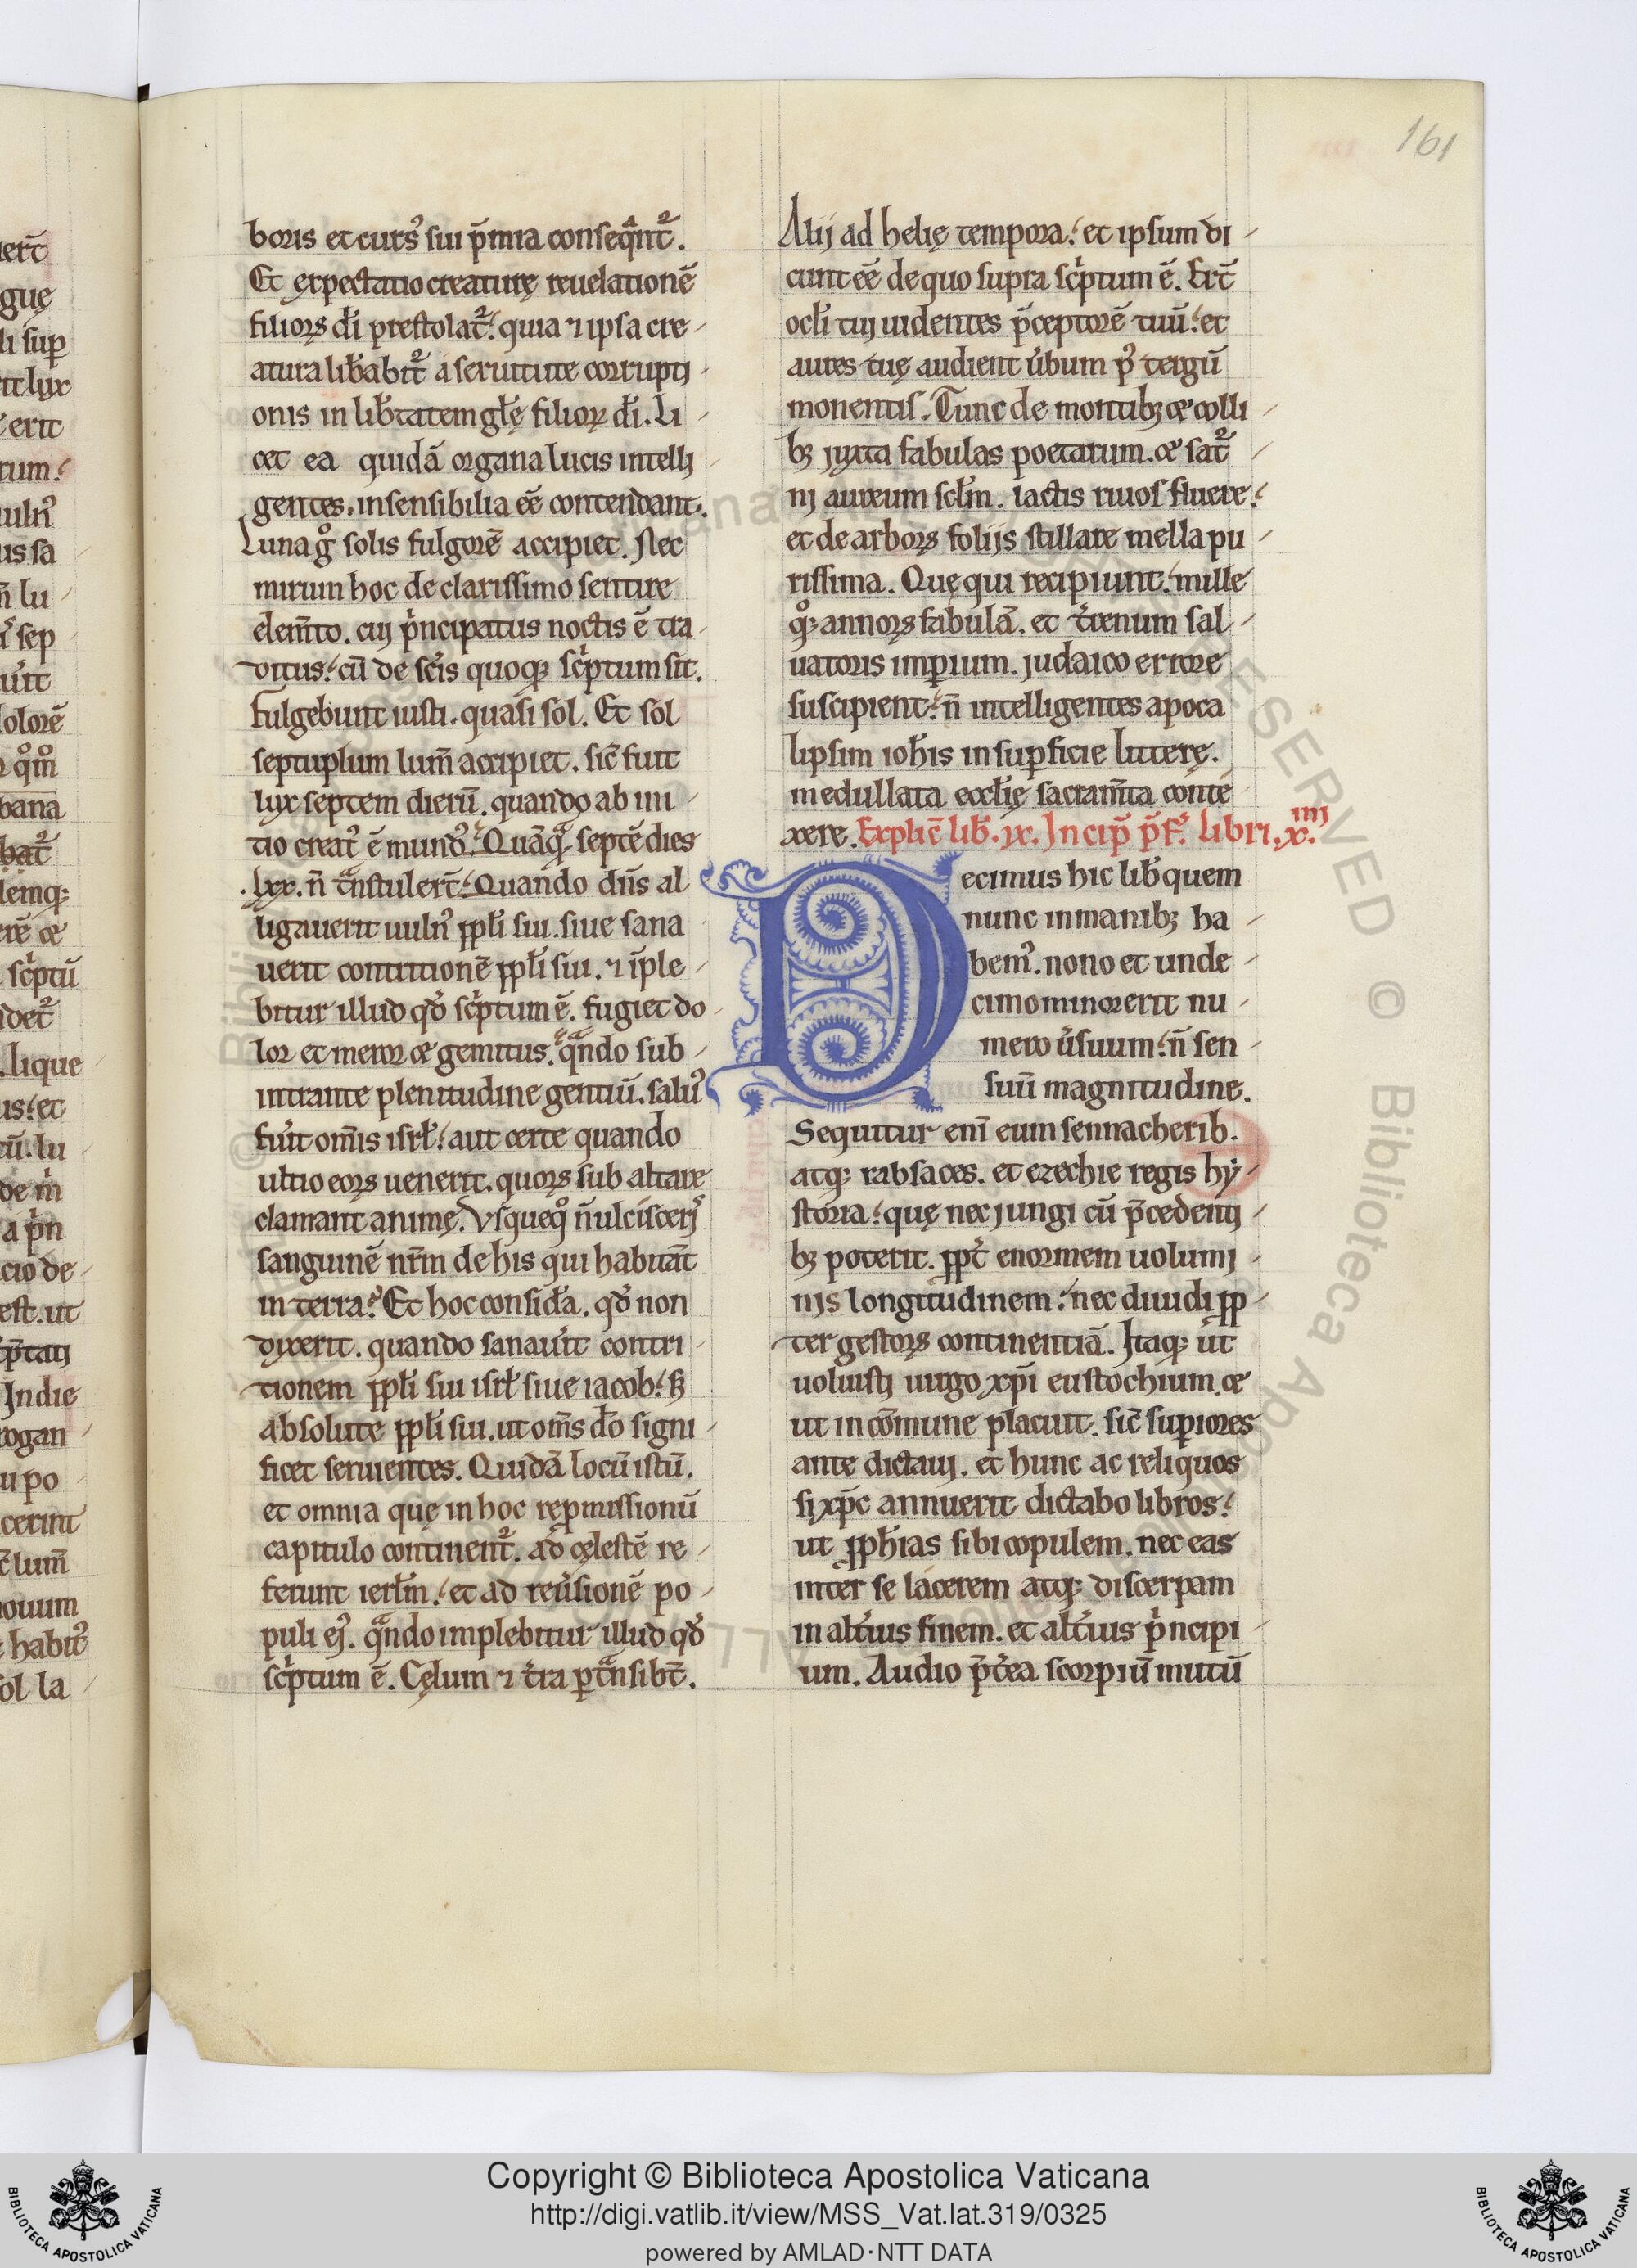 161
boris et curs᾽ sui p̄mia conseq̄nt᷑.
Et expectatio creaturę reuelationē
filioꝝ dī prestolat᷑. quia ⁊ ipsa cre
atura lib̄abit᷑ a seruitute corrupti
onis in lib̄tatem gl̄ę filioꝝ dī. Li
cet ea quidā organa lucis intelli
gentes. insensibilia ēē contendant.
Luna gͦ solis fulgorē accipiet. Nec
mirum hoc de clarissimo sentire
elem̄to. cui p̍ncipatus noctis ē tra
ditus. cū de sc̄is quoqꝫ sc̍ptum sit.
Fulgebunt iusti. quasi sol. Et sol
septuplum lum̄ accipiet. sic̄ fuit
lux septem dierū. quando ab ini
tio creat᾽ ē mund᾽. Quāqͣ septē dies
.lxx. n̄ tͣnstulert̄. Quando dn̄s al
ligauerit uuln᾽ ppl̄i sui. siue sana
uerit contritionē ppl̄i sui. ⁊ īple
bitur illud qd̓ sc̍ptum ē. fugiet do
lor et meror & gemitus. qͣndo sub
intrante plenitudine gentiū. salu᾽
fu̓it om̄is isrl̄. aut certe quando
ultio eoꝝ uenerit. quoꝝ sub altare
clamant animę. Vsqueqͦ n̄ ulcisceris
sanguinē nr̄m de his qui habitāt
in terra? Et hoc consid̓a. qd̓ non
dixerit. quando sanau̓it contri
tionem ppl̄i sui isrl̄ siue iacob. sꝫ
absolute ppl̄i sui. ut om̄s dō signi
ficet seruientes. Quidā locū istū.
et omnia quę in hoc rep̱missionū
capitulo continent᷑. ad cęlestē re
ferunt ierl̄m. et ad reu̓sionē po
puli ei᾽. qͣndo implebitur illud qd̓
sc̍ptum ē. Cęlum ⁊ t̓ra ꝑtͣnsibt̄.
Alii ad helię tempora. et ipsum di
cunt ēē de quo supra sc̍ptum ē. Ert̄
ocl̄i tui uidentes p̄ceptorē tuū. et
aures tuę audient u̓bum p᾽ tergū
monentis. Tunc de montibꝫ & colli
bꝫ iuxta fabulas poetarum. & sat᷑
ni aureum scl̄m. lactis riuos fluere.
et de arboꝝ foliis stillare mella pu
rissima. Quę qui recipiunt. mille
qͦꝫ annoꝝ fabulā. et t̓renum sal
uatoris imꝑium. iudaico errore
suscipient. n̄ intelligentes apoca
lipsim ioh̄is in suꝑficie litterę.
medullata eccl̄ię sacram̄ta conte
xere. Explic̄ lib̄. ix. Incip̄ p̄f᾽. libri. x.
iiii
Decimus hic lib̄ quem
nunc in manibꝫ ha
bem᾽. nono et unde
cimo minor erit nu
mero u̓suum. n̄ sen
suū magnitudine.
Sequitur enī eum sennacherib.
atqꝫ rabsaces. et ezechie regis hy
storia. quę nec iungi cū p̄cedenti
bꝫ poterit. ꝓpt̓ enormem uolumi
nis longitudinem. nec diuidi ꝓp
ter gestoꝝ continentiā. Itaqꝫ ut
uoluisti uirgo xp̄i eustochium. &
ut in cōmune placuit. sic̄ suꝑiores
ante dictaui. et hunc ac reliquos
si xp̄c annuerit dictabo libros.
ut ꝓph̄ias sibi copulem. nec eas
inter se lacerem atqꝫ discerpam
in alt̓ius finem. et alt̓ius p̍ncipi
um. Audio p̄t̓ea scorpiū mutū
Copyright © Biblioteca Apostolica Vaticana
http://digi.vatlib.it/view/MSS_Vat.lat.319/0325
powered by AMLAD·NTT DATA
BIBLIOTECA APOSTOLICA VATICANA
BIBLIOTECA APOSTOLICA VATICANA